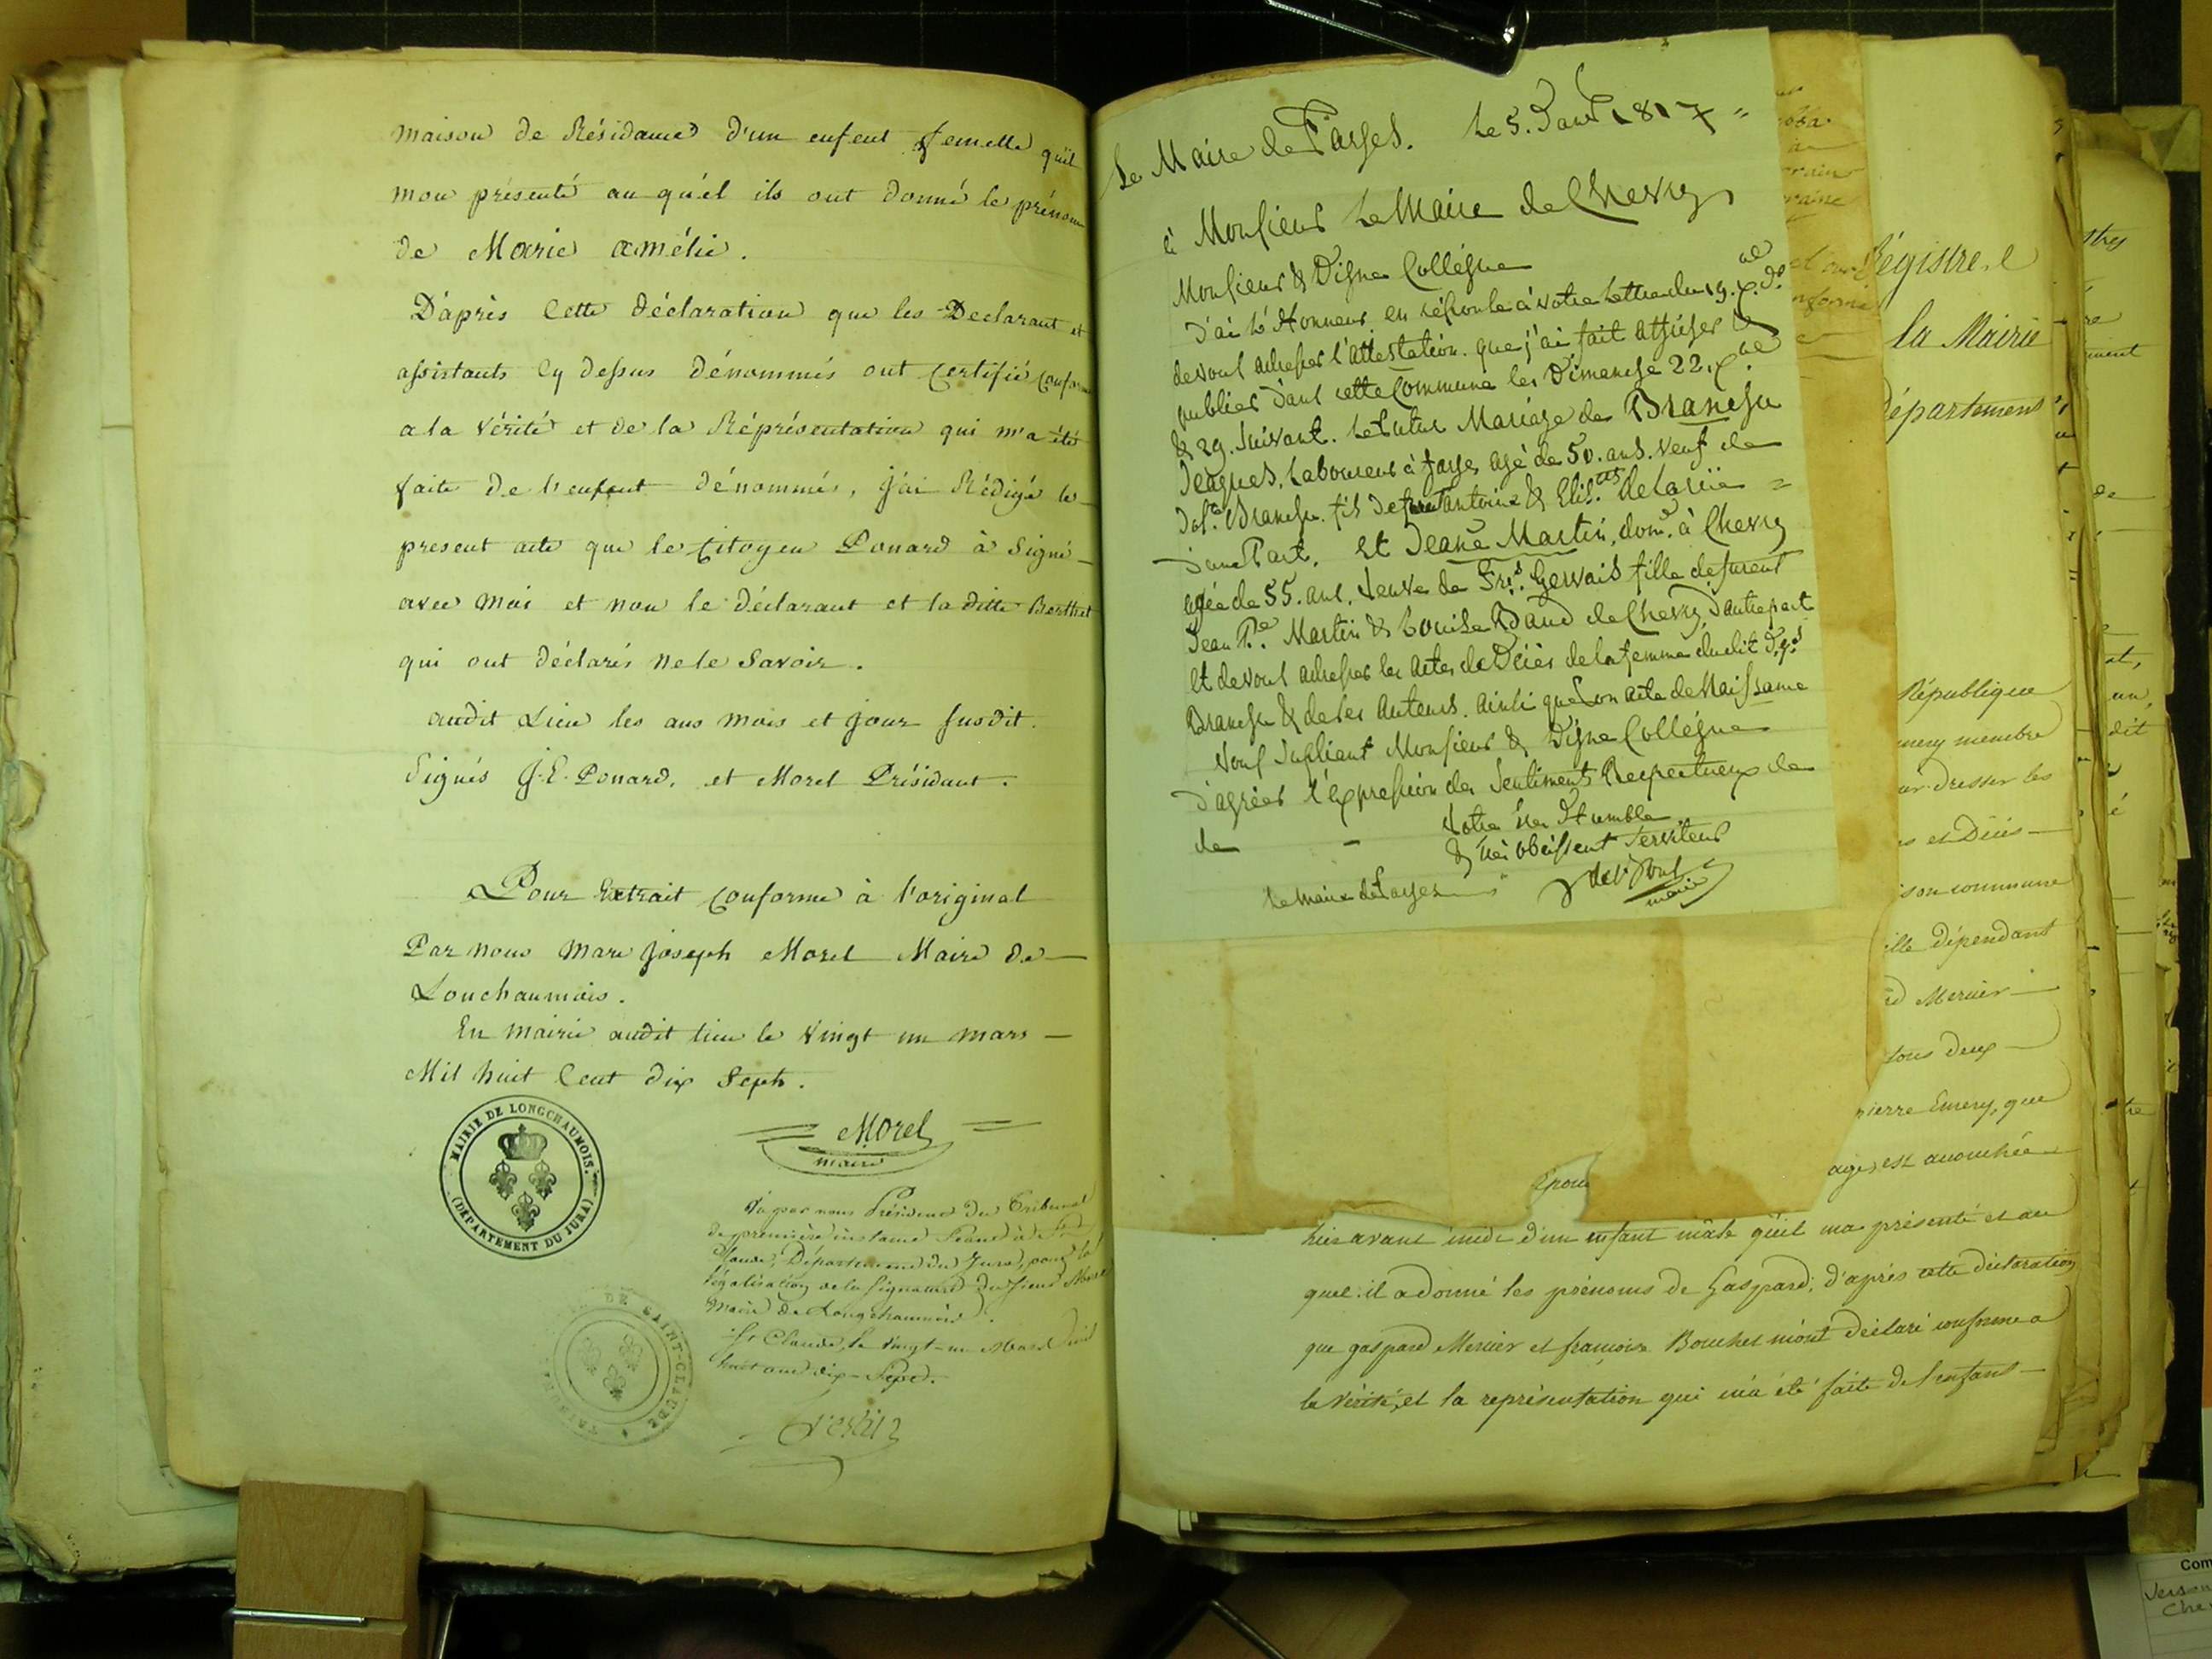 maison de Résidance d'un enfent femelle qu'il
mon présenté au qu'él ils ont donné le prénom
de Marie amélie.
D'aprés Cette déclaration que les Declarant et
assistants Cy dessus dénommés ont Certifié Conforme
a la vérité et de la Réprésentation qui m'a été
faite de l'enfent dénommés, j'ai Rédigé le
present acte que le Citoyen Ponard à Signé
avec moi et non le déclarant et la ditte Berthet
qui ont déclarés ne le Savoir.
audit Lieu les ans mois et jour susdit.
Signés J. E. Ponard, et Morel Présidant.
Pour Extrait Conforme à l'original
Par nous Marc joseph Morel Maire de
Lonchaumois.
En mairie audit lieu le vingt un mars
Mil huit Cent dix Sept.
MAIRIE DE LONGCHAUMOIS.
(DÉPARTEMENT DU JURA)
Morel
maire
Vu par nous Président du Tribunal
de première instance Séant à St
Claude, Département du Jura, pour la
légalisation de la Signature du Sieur Morel
Maire de Longchaumois.
St Claude, le vingt-un Mars mil
huit cent dix-Sept.
DE SAINT-CLAUDE
Le Maire de Farges. Le 5. Janv. 1817
à Monsieur Le Maire de Chevry
Monsieur & Digne Collégue
J'ai L'Honneur en réponse à votre Lettre du 19. Xbre dr
de vous adresser l'attestation que j'ai fait afficher &
publier dans cette Commune les Dimanche 22. Xbre
& 29. suivant. Le futur Mariage de Branche
Jaques, Laboureur à farges agé de 50. ans. veuf de
Jose. Branche. fils de feu antoine & Elis.
d'une Part. et Jeane Martin, domée à Chevry
agée de 55. ans, veuve de Frs. Gervais fille defurent
Jean Pre Martin & Louise Baud de Chevry, d'autre part
et de vous adresser les actes de Décès de la femme du dit Jqs
Branche & de ses auteurs. ainsi que son acte de Naissance
Vous supliant Monsieur & Digne Collégue
d'agréer l'expression des Sentiments Respectueux de
de - Votre très Humble
& très obéissant Serviteur
Le maire de Farges
maire
Régistre
la Mairie
Département
République
membre
dresser les
et Décès
commune
dépendant
Mercier
tous deux
pierre Emery, que
est accouchée
Epou
hier avant midi d'un enfant mâle qu'il ma présenté et au
quel il a donné les prénoms de Gaspard; d'aprés cette déclaration
que gaspard Mercier et françoise Bouchet m'ont déclaré conforme a
la vérité, et la représentation qui m'a été faite de l'enfant